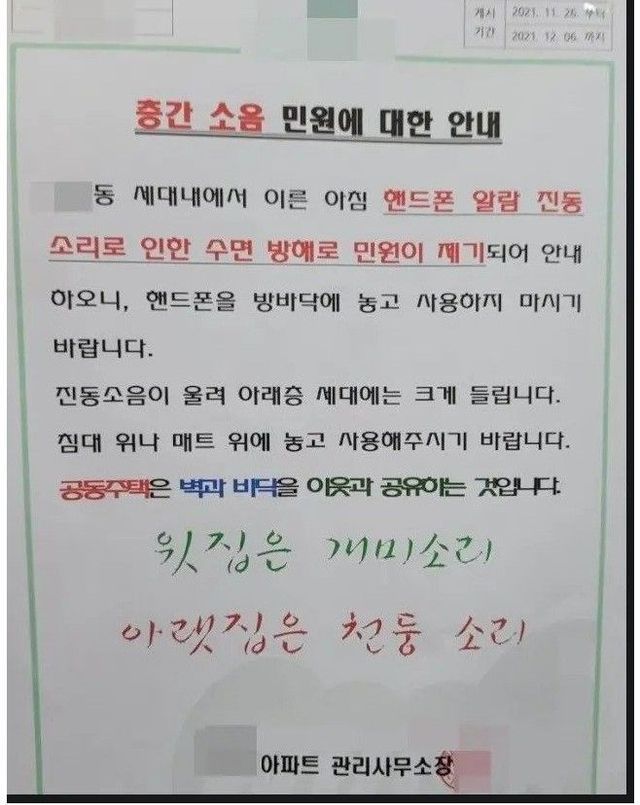 게시 기간
2021. 11. 26. 부터
2021. 12. 06. 까지
층간 소음 민원에 대한 안내
동 세대내에서 이른 아침 핸드폰 알람 진동
소리로 인한 수면 방해로 민원이 제기되어 안내
하오니, 핸드폰을 방바닥에 놓고 사용하지 마시기
바랍니다.
진동소음이 울려 아래층 세대에는 크게 들립니다.
침대 위나 매트 위에 놓고 사용해주시기 바랍니다.
공동주택은 벽과 바닥을 이웃과 공유하는 것입니다.
윗집은 개미소리
아랫집은 천둥 소리
아파트 관리사무소장